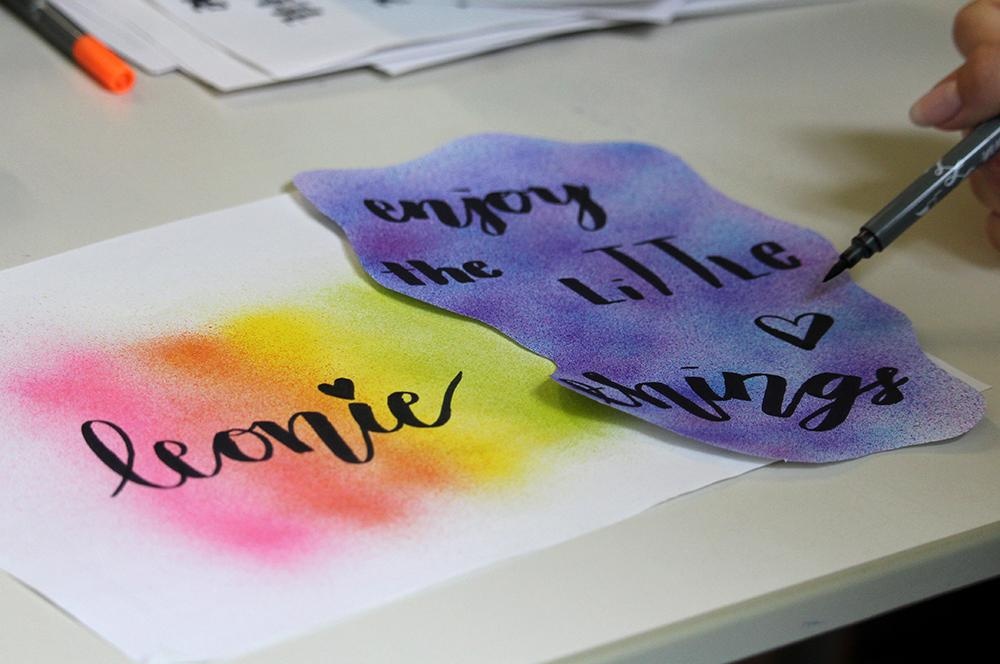 enjoy
the LiTTLe
things
leonie